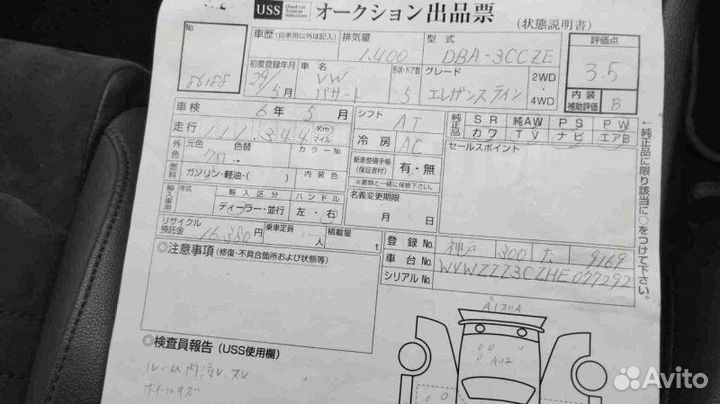 USS Used car System Solutions オークション出品票 (状態説明書)
No. 86188
車歴 (自家用以外は記入) 排気量 1,400 型式 DBA-3CCZE 評価点 3.5
初度登録年月 29年 5月 車名 VW パサート 形状・ドア数 5 グレード エレガンスライン 2WD・4WD
内装補助評価 B
車検 6年 5月 シフト AT
純正品 SR 純AW PS PW
カワ TV ナビ エアB
走行 111,344 Km マイル 冷房 AC
セールスポイント
外色 元色 色替 カラーNo. クロ→
新車整備手帳 (保証書付) 有・無
※書類と一緒に保管下さい。
燃料 ガソリン・軽油・( ) 内装色
名義変更期限 月 日
輸入車用 年式 輸入区分 ハンドル
ディーラー・並行 左・右
リサイクル預託金 16,380円 乗車定員 人 積載量 t
登録No. 神戸 300 た 9169
車台No. WVWZZZ3CZHE077292
シリアルNo.
←純正品に限り該当に○をつけて下さい。
◎注意事項 (修復・不具合箇所および状態等)
◎検査員報告 (USS使用欄)
ルーム内汚レ、スレ
ホイールキズ
A1 A
A U2
Avito